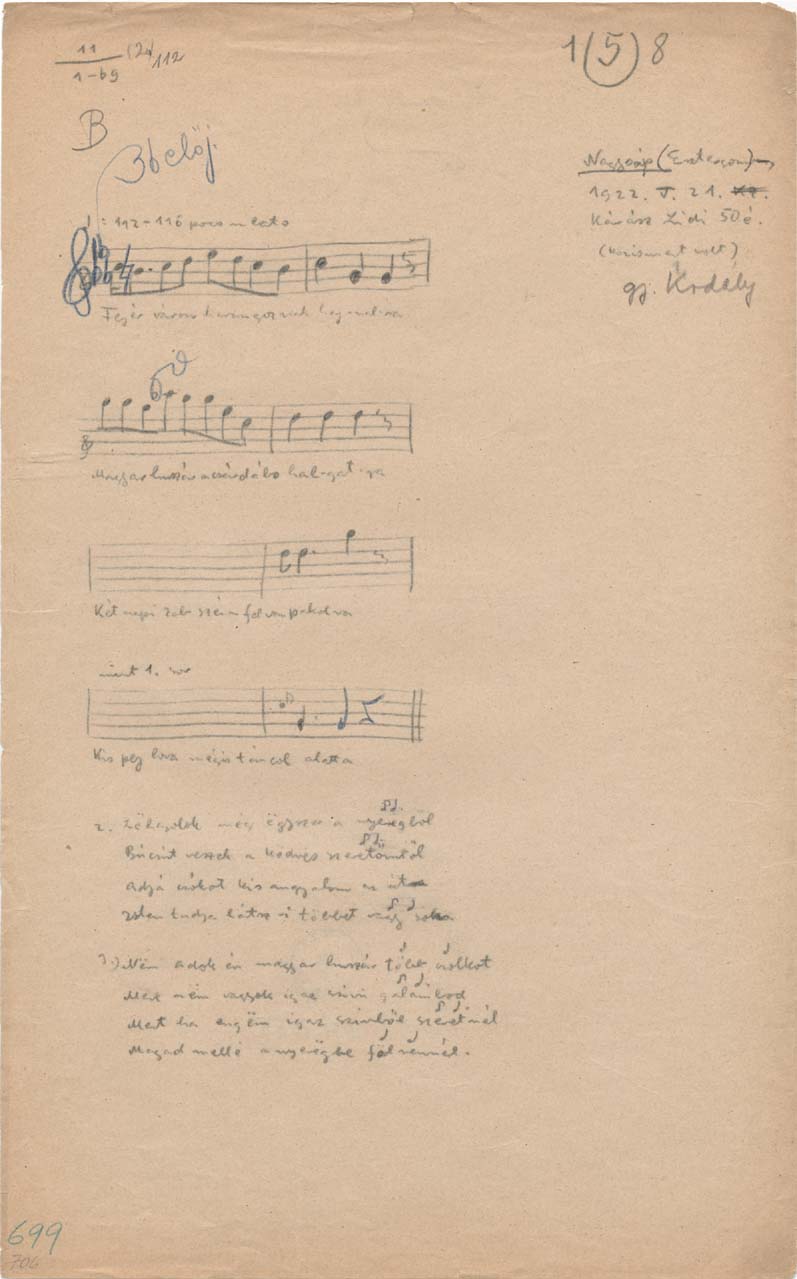 11
1-69 (2a) 112
1(5)8
B
3b előj.
Nagysáp (Esztergom)
1922. V. 21.
Kárász Lidi 50 é.
= 112-116
(közismert volt)
gj. Krdály
Fejér városr harangoznak haj-nal-ra
Magyar huszár a csárdába hal-gat-ja
Két napi zab széna föl van pakolva
mint 1. sor
Kis pej lova mégis táncol alatta
2. még ëgyszer a nyeregböl
Búcsút veszek a kedves szeretömtöl
Adjá csókot kis angyalom az útra
Isten tudja látsz-i többet vagy soha
3.) Nëm adok én magyar huszár több csólkot
Mert nëm vagyok igaz szívü galambod
Mert ha engëm igaz szívböl szeretnél
Magad mellé a nyerëgbe föl vennél.
699
706